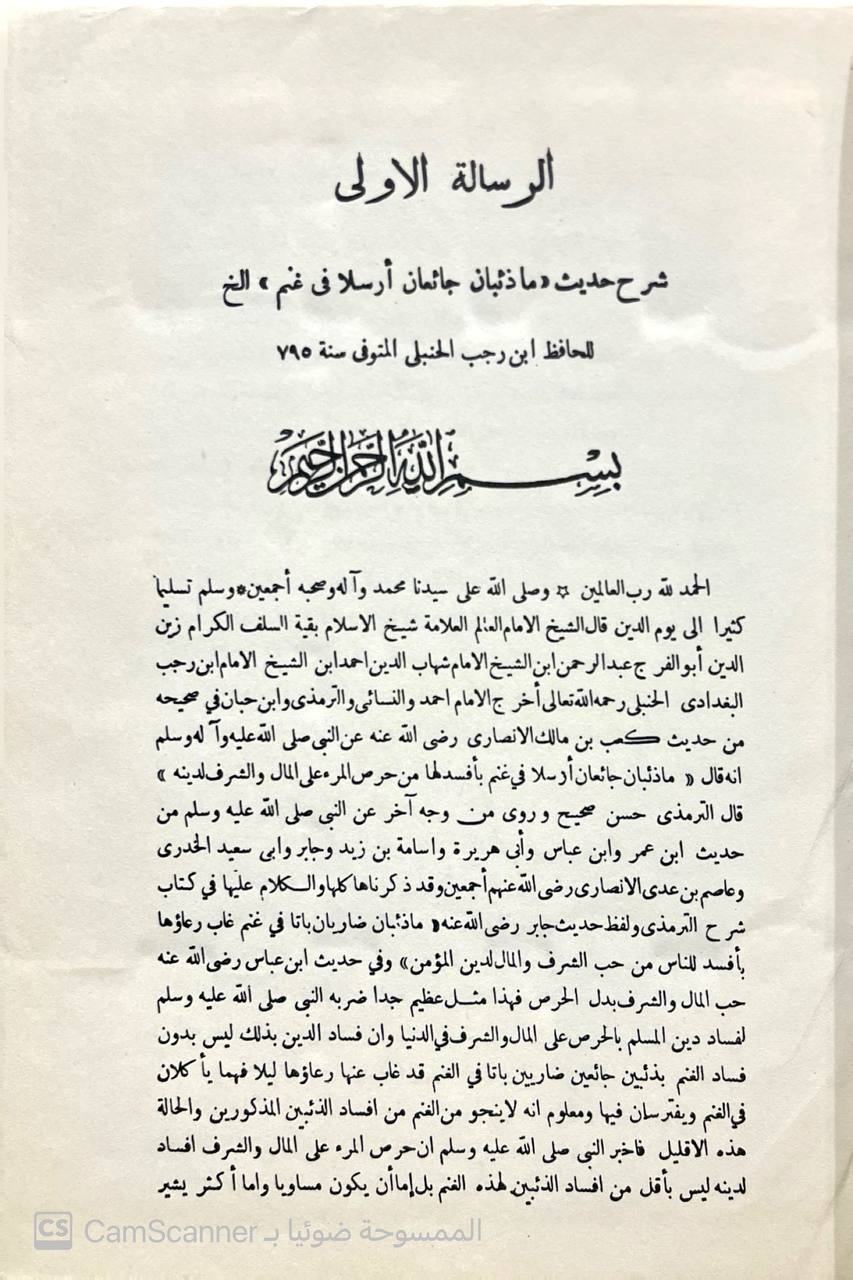 الرسالة الاولى
شرح حديث «ماذئبان جائعان أرسلا فى غنم» الخ
للحافظ ابن رجب الحنبلى المتوفى سنة ٧٩٥
بسم الله الرحمن الرحيم
الحمد لله رب العالمين ☆ وصلى الله على سيدنا محمد وآله وصحبه أجمعين*وسلم تسليما
كثيرا الى يوم الدين قال الشيخ الامام العالم العلامة شيخ الاسلام بقية السلف الكرام زين
الدين أبو الفرج عبد الرحمن ابن الشيخ الامام شهاب الدين احمد ابن الشيخ الامام ابن رجب
البغدادى الحنبلى رحمه الله تعالى أخرج الامام احمد والنسائى والترمذى وابن حبان في صحيحه
من حديث كعب بن مالك الانصارى رضى الله عنه عن النبى صلى الله عليه وآله وسلم
انه قال « ماذئبان جائعان أرسلا في غنم بأفسد لها من حرص المرء على المال والشرف لدينه »
قال الترمذى حسن صحيح وروى من وجه آخر عن النبى صلى الله عليه وسلم من
حديث ابن عمر وابن عباس وأبى هريرة واسامة بن زيد وجابر وابى سعيد الخدرى
وعاصم بن عدى الانصارى رضى الله عنهم أجمعين وقد ذكرناها كلها والكلام عليها في كتاب
شرح الترمذى ولفظ حديث جابر رضى الله عنه « ماذئبان ضاريان باتا في غنم غاب رعاؤها
بأفسد للناس من حب الشرف والمال لدين المؤمن» وفي حديث ابن عباس رضى الله عنه
حب المال والشرف بدل الحرص فهذا مثل عظيم جدا ضربه النبى صلى الله عليه وسلم
لفساد دين المسلم بالحرص على المال والشرف في الدنيا وان فساد الدين بذلك ليس بدون
فساد الغنم بذئبين جائعين ضاريين باتا في الغنم قد غاب عنها رعاؤها ليلا فهما يأكلان
في الغنم ويفترسان فيها ومعلوم انه لاينجو من الغنم من افساد الذئبين المذكورين والحالة
هذه الاقليل فاخبر النبى صلى الله عليه وسلم ان حرص المرء على المال والشرف افساد
لدينه ليس بأقل من افساد الذئبين لهذه الغنم بل إما أن يكون مساويا واما أكثر يشير
CS CamScanner الممسوحة ضوئيا بـ